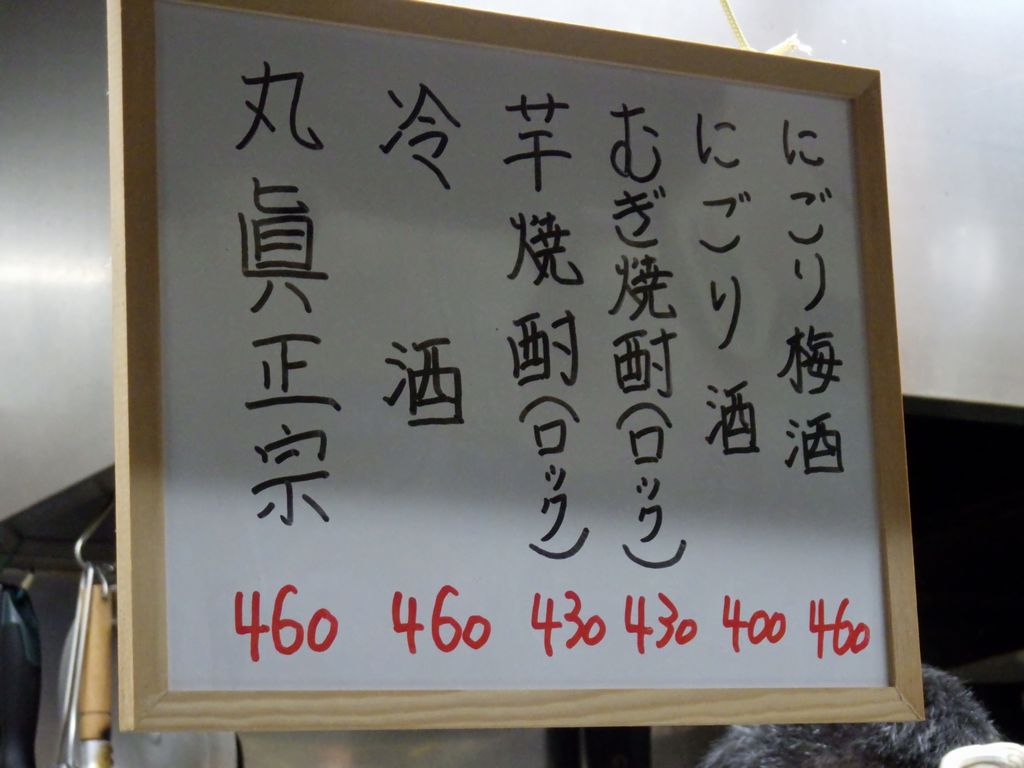 にごり梅酒 460
にごり酒 400
むぎ焼酎(ロック) 430
芋焼酎(ロック) 430
冷酒 460
丸眞正宗 460